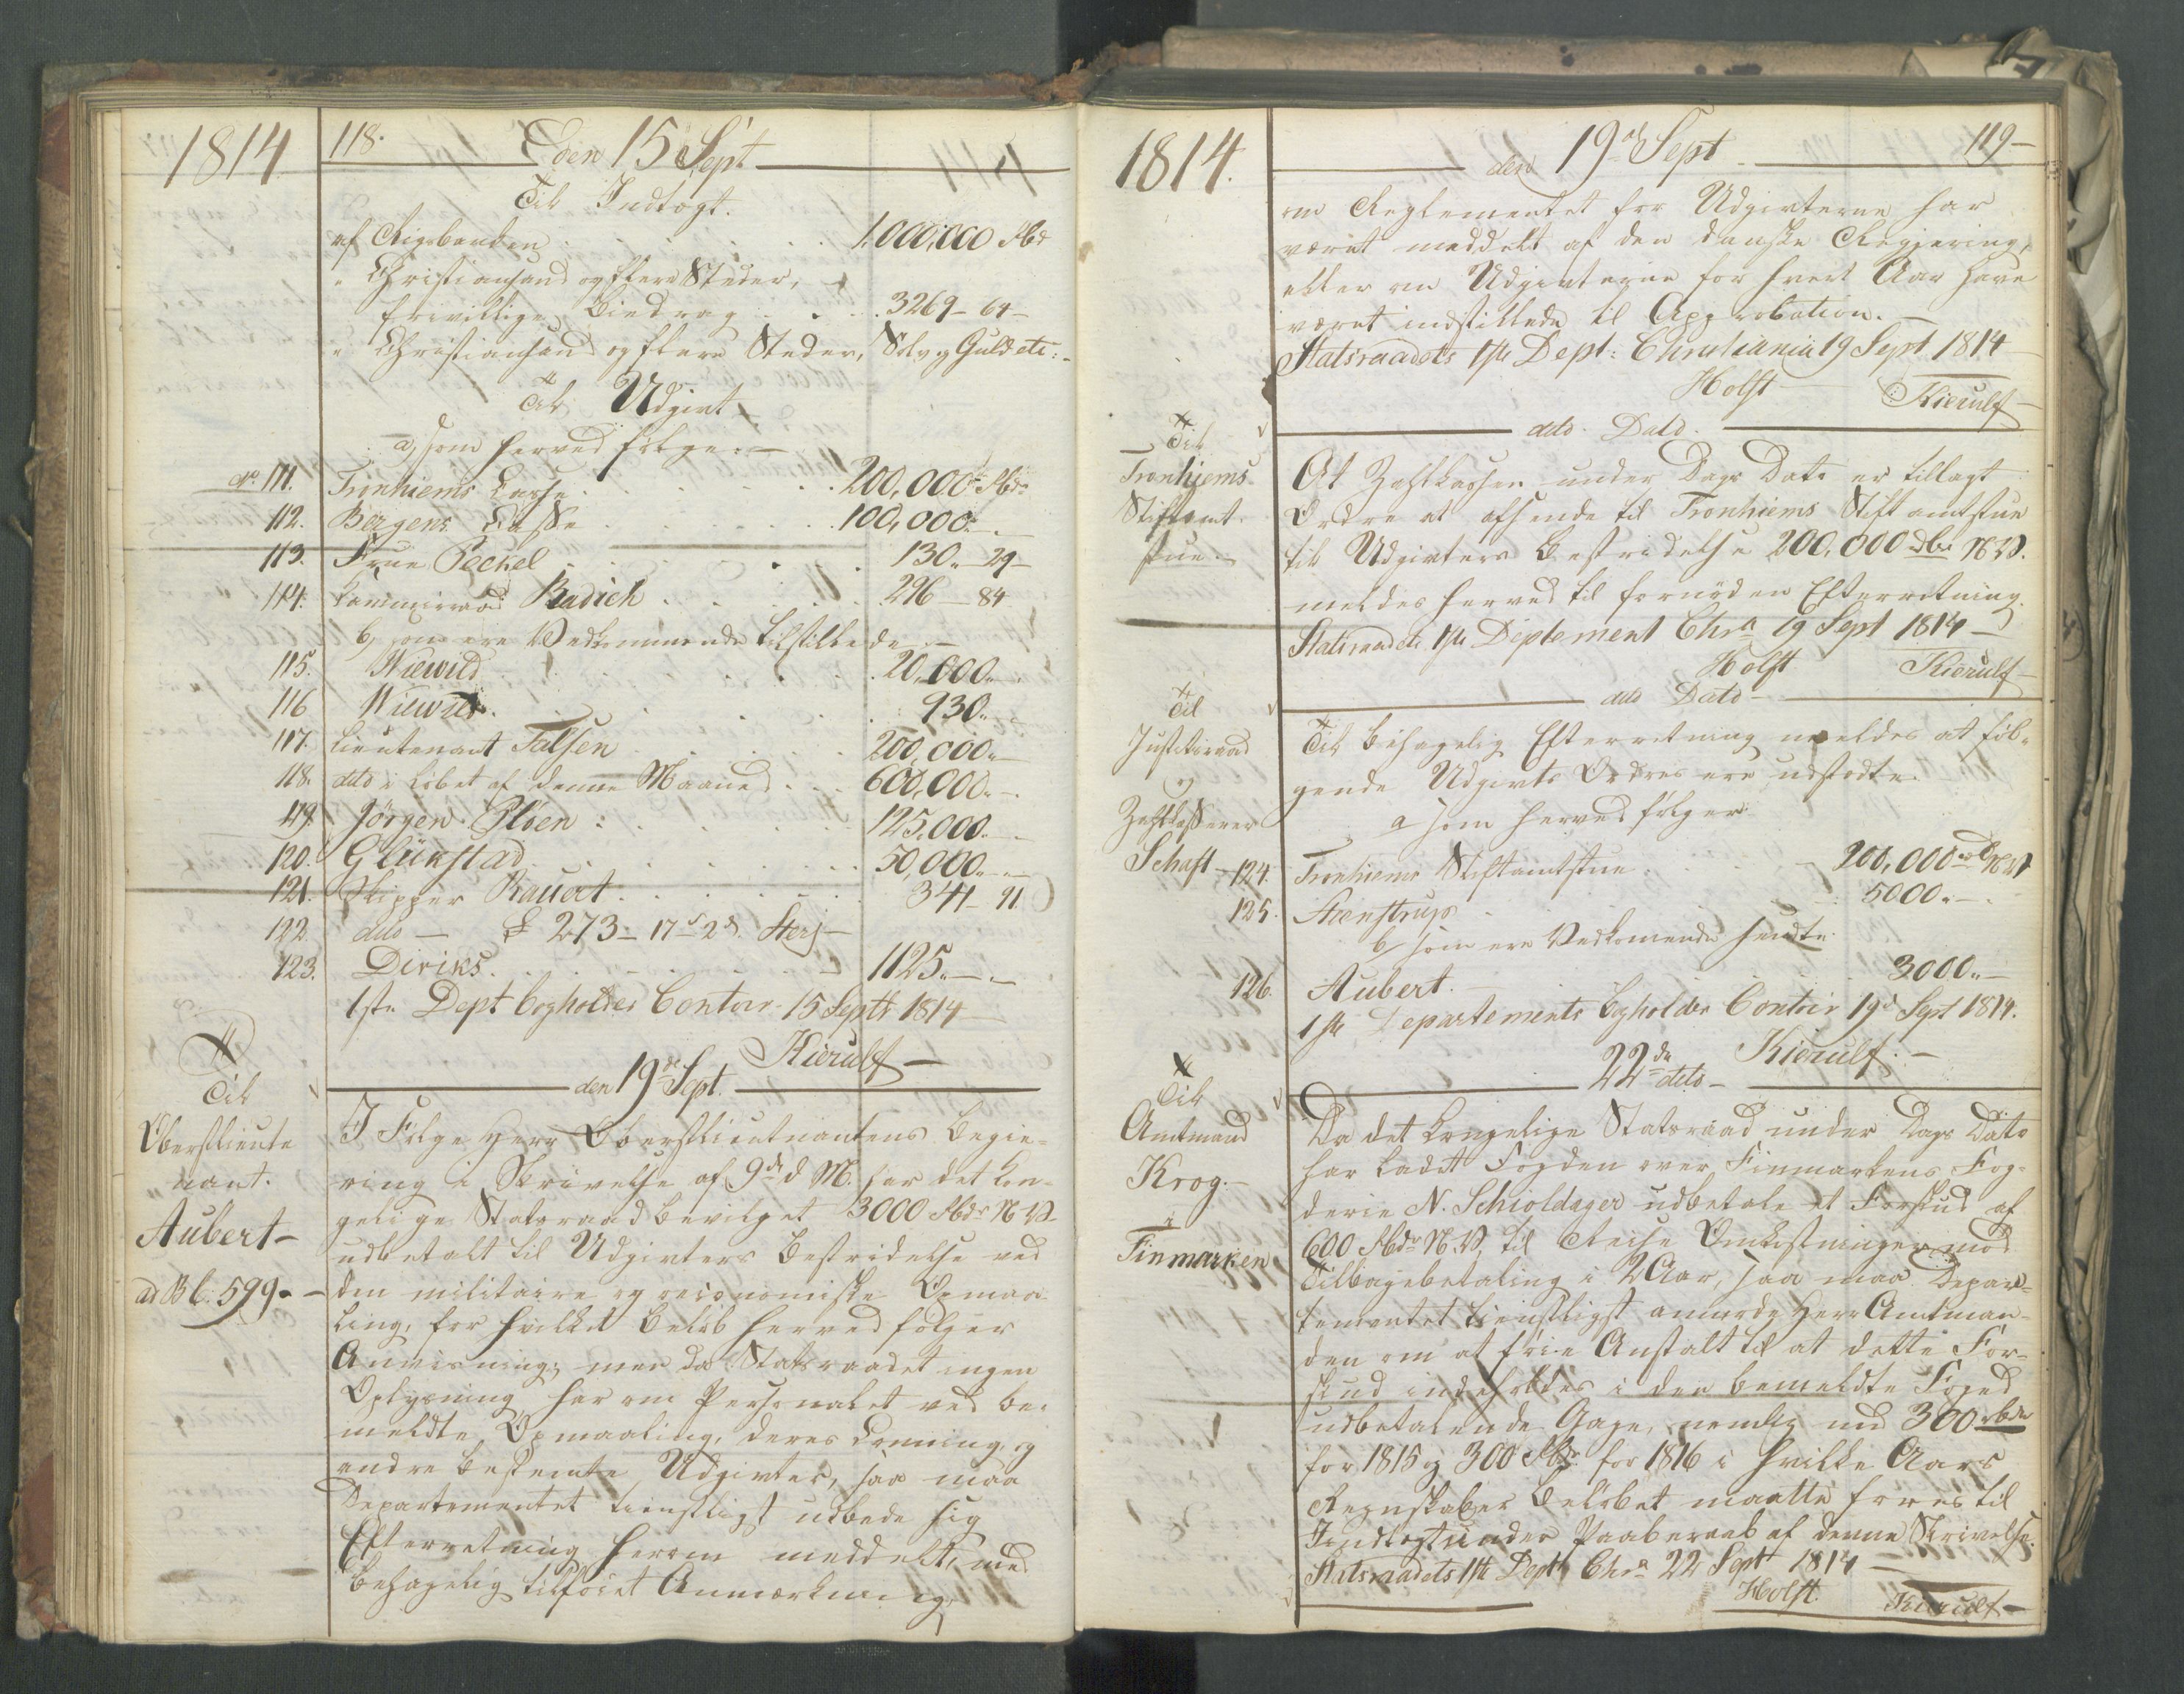 1814
118.
den 15 Sept
Til Indtægt.
af Rigsbanken . . . 1,000,000 Rbd
" Christiansand og flere Steder,
frivillige Bidrag . . . 3269 - 64 -
" Christiansand og flere Steder, Sølv og Guld etc: -
til Udgivt
a, som herved følger: -
No. 111. Tronhiems Casse . . . 200,000 Rbd
112. Bergens Casse . . . 100,000.
113. Frue Pechel . . . 130 " 29 -
114. Kammerraad Radich . . . 296 - 84
b, som ere Vedkommende tilstillede -
115. Wiewild . . . 20,000 "
116 Wiewild . . . 930 "
117. Lieutenant Falsen . . . 200,000 "
118. dito i Løbet af denne Maaned . . . 600,000 " -
119. Jörgen Pløen . . . 125,000. -
120. Glükstad . . . 50,000 " -
121. Skipper Rauert . . . 341 - 91
122. dito - £ 273 - 17 s 2 d. Sterl -
123. Diriks . . . 1125 " -
1ste Dept Bogholder Contoir 15 Septr 1814
Kierulf -
den 19de Sept.
Til
Oberstlieute
nant.
Aubert -
ad Bl. 599 -
I Følge Herr Oberstlieutnantens Begie-
ring i Skrivelse af 9de d M. har det Kon-
gelige Statsraad bevilget 3000 Rbdr N.V.
udbetalt til Udgivters Bestridelse ved
den militaire og oeconomiske Opmaa
ling, for hvilket Beløb herved følger
Anvisning; men da Statsraadet ingen
Oplysning har om Personalet ved be-
meldte Opmaaling, deres Lønning, og
andre bestemte Udgivter, saa maa
Departementet tienstligst udbede sig
Efterretning herom meddelt, med
behagelig tilføiet Anmærkning,
1814.
den 19de Sept
119 -
om Reglementet for Udgivterne har
været meddelt af den danske Regiering,
eller om Udgivterne for hvert Aar have
været indstillede til Approbation. -
Statsraadets 1ste Dept: Christiania 19 Sept 1814
Holst Kierulf -
dito Dato.
Til
Tronhjems
Stiftamt-
stue. -
At Zahlkassen under Dags Dato er tillagt
Ordre at afsende til Tronhiems Stiftamtstue
til Udgivters Bestridelse 200,000 rbdr N.V.
meldes herved til fornøden Efterretning.
Statsraadets 1ste Deptement Chra 19 Sept 1814 -
Holst Kierulf -
dito Dato -
Til
Justitsraad
og
Zahlkasserer
Schaft -
Til behagelig Efterretning meldes at føl-
gende Udgivts Ordres ere udstædte.
a som herved følger.
124. Tronhiems Stiftamtstue . . . 200,000 rbd N.V
125. Steenstrup . . . 5000 " -
b, som ere Vedkomende sendte
126. Aubert. . . . 3000 " -
1ste Departements Bogholder Contoir 19de Sept 1814.
Kierulf. -
22de dito -
Til
Amtmand
Krog. -
i
Finmarken
Da det Kongelige Statsraad under Dags Dato
har ladet Fogden over Finmarkens Fog-
derie N. Schioldager udbetale et Forskud af
600 Rbdr N.V, til Reise Omkostninger mod
Tilbagebetaling i 2 Aar, saa maa Depar-
tementet tienstligst anmode Herr Amtman-
den om at føie Anstalt til at dette For-
skud indeholdes i den bemeldte Foged
udbetalende Gage, nemlig med 300 rbdr
for 1815 og 300 Rbdr for 1816 i hvilke Aars
Regnskaber Beløbet maatte føres til
Indtægt under Paaberaab af denne Skrivelse.
Statsraadets 1ste Dept Chra 22 Sept 1814 -
Holst. Kierulf -